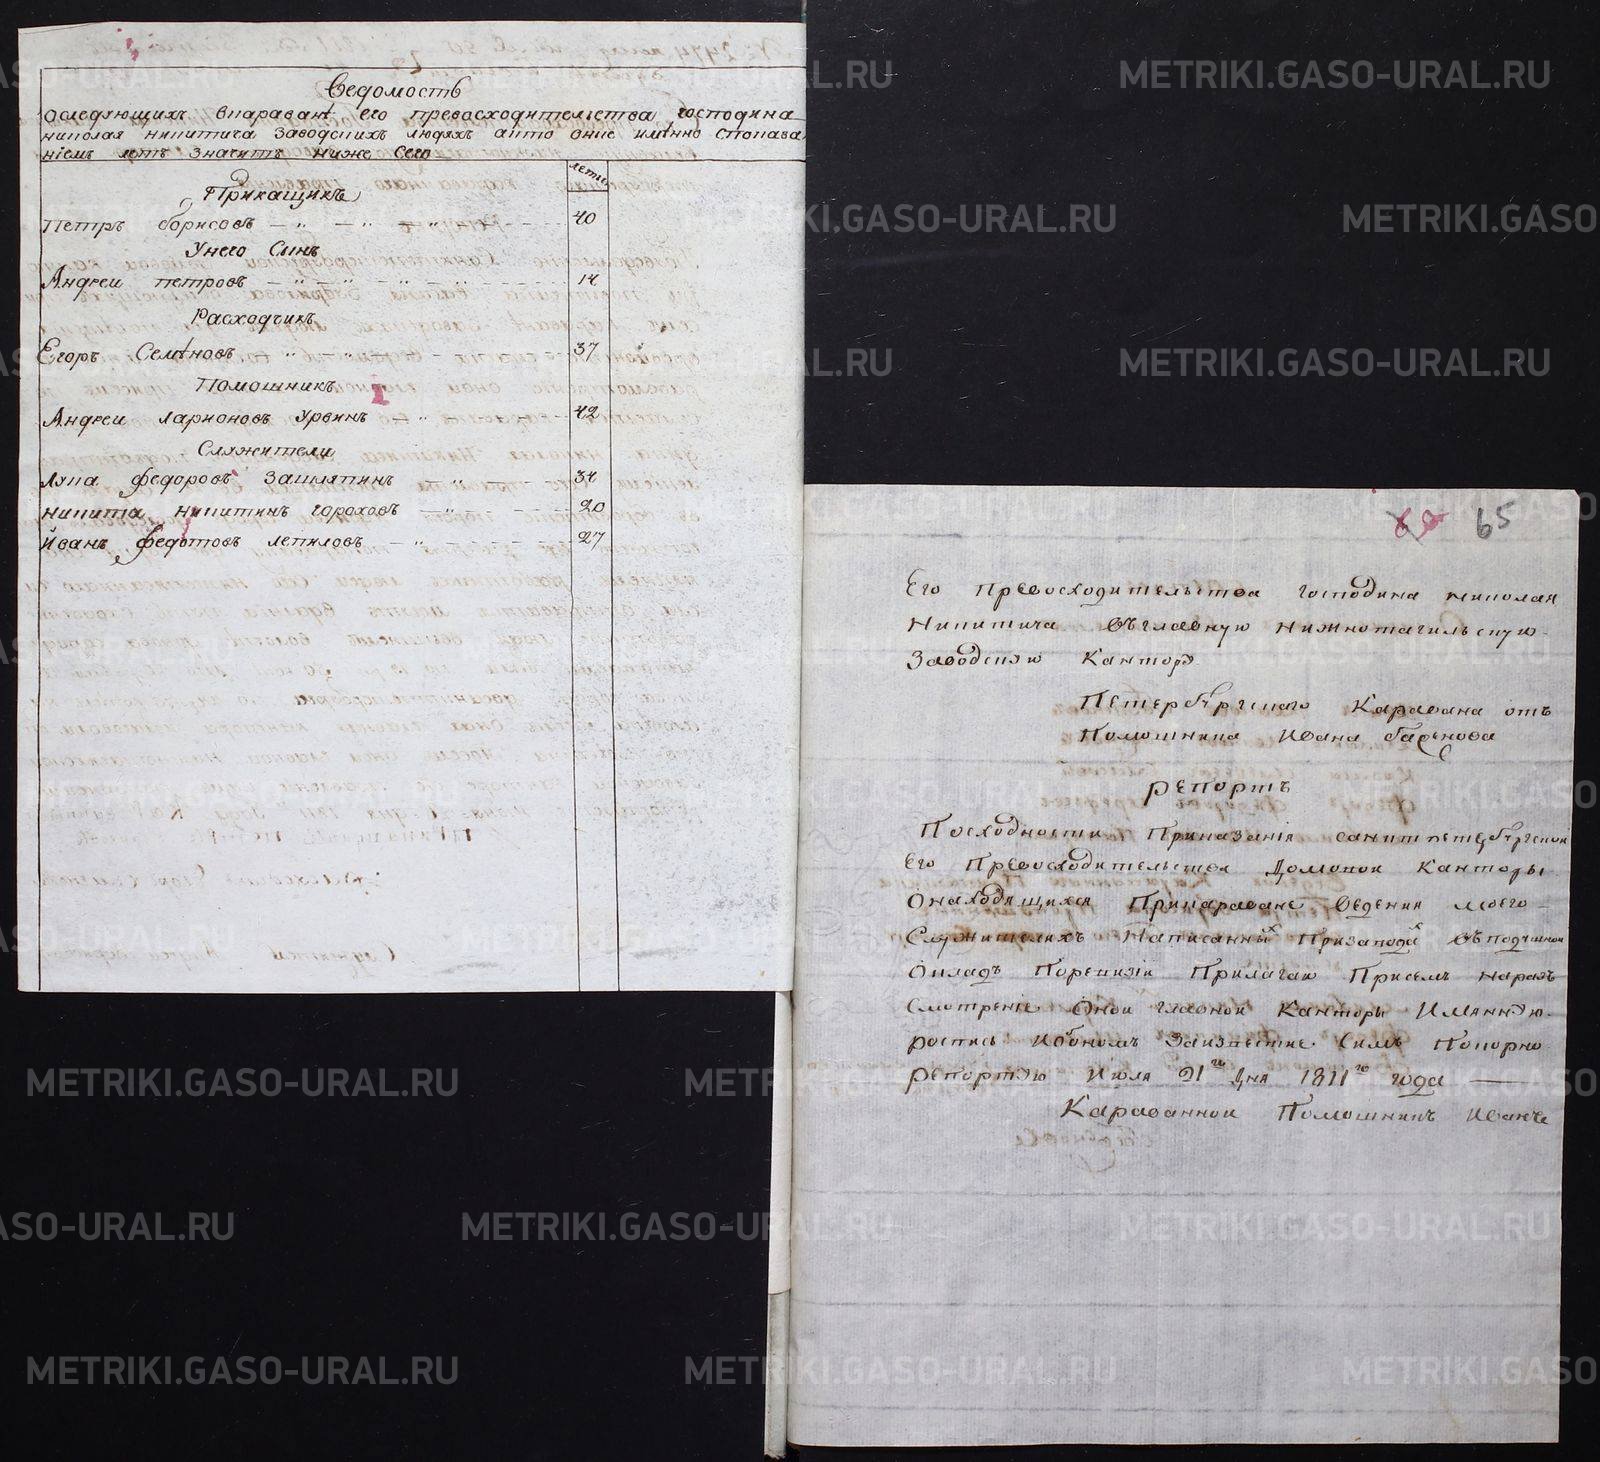 Ведомость
оследующихъ вкараванѣ его превосходителства господина
николая никитича заводскихъ людяхъ акто оние имѣнно спокава
нiемъ летъ значитъ ниже сего
леты
Прикащикъ
Петръ борисовъ 40
Унего Сынъ
Андреи петровъ 14
Расходчикъ
Егоръ Семѣновъ 37
Помошникъ
Андреи ларионовъ Урвинъ 42
Служители
лука федоровъ зашляпинъ 34
никита никитинъ гороховъ 20
Иванъ федотовъ лепиловъ 27
65
Его Превосходительства господина николая
Никитича въглавную нижнотагильскую
Заводскую Кантору
Петербургскаго Каравана отъ
Помошника Ивана
репортъ
Посходности Приказанiя санктпетербургской
Его Превосходительства Домовои Канторы
Онаходящихся Прикараване Ведения моего
Служителяхъ Написанных
Окладъ Поревизiи Прилагаю Присемъ нараз
Смотренiе Онои главнои Канторы Имянную
роспись Иобономъ Заизвестие Симъ Покорно
репортую Июля 21го дня 1811го года
Караваннои Помошникъ Иванъ
METRIKI.GASO-URAL.RU